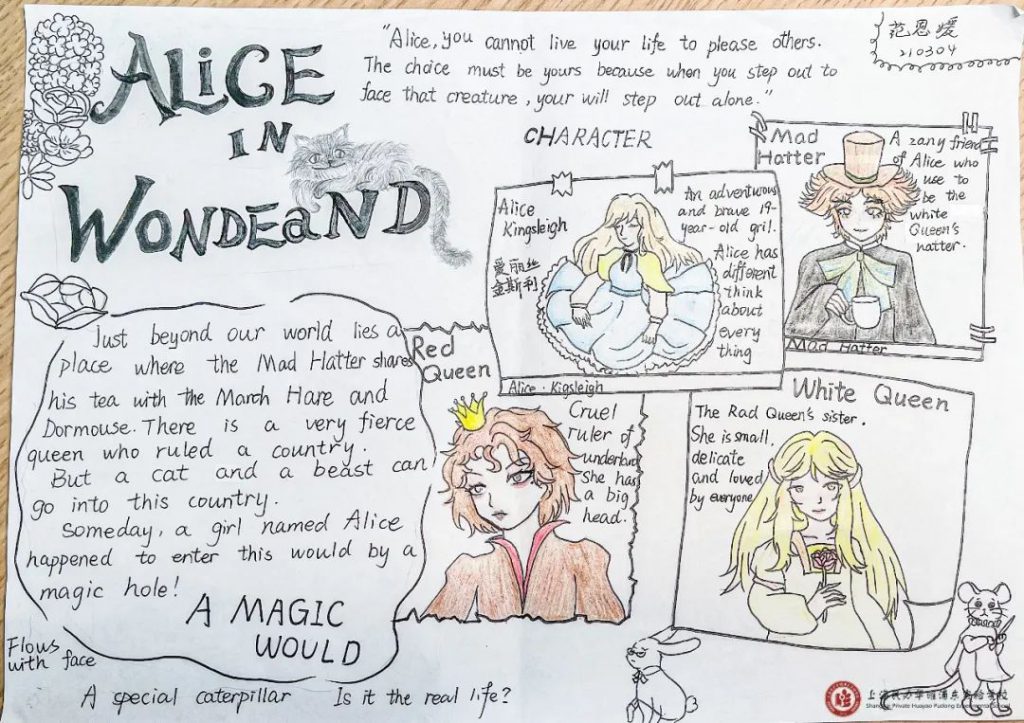 ALiCE
IN
WONDEaND
"Alice, you cannot live your life to please others.
The choice must be yours because when you step out to
face that creature, your will step out alone."
范恩媛
210304
CHARACTER
Alice
Kingsleigh
爱丽丝
金斯利
An adventurous
and brave 19-
year-old gril.
Alice has
different
think
about
every
thing
Alice · Kigsleigh
Mad
Hatter
A zany friend
of Alice who
use to
be the
white
Queen's
natter.
Mad Hatter
Just beyond our world lies a
place where the Mad Hatter shares
his tea with the March Hare and
Dormouse. There is a very fierce
queen who ruled a country.
But a cat and a beast can
go into this country.
Someday, a girl named Alice
happened to enter this would by a
magic hole!
A MAGIC
WOULD
Red
Queen
Cruel
ruler of
underland
She has
a big
head.
White Queen
The Rad Queen's sister.
She is small,
delicate
and loved
by everyone
Flows
with face
A special caterpillar Is it the real life?
上海民办华曜浦东实验学校
Shanghai Private Huayao Pudong Experimental School